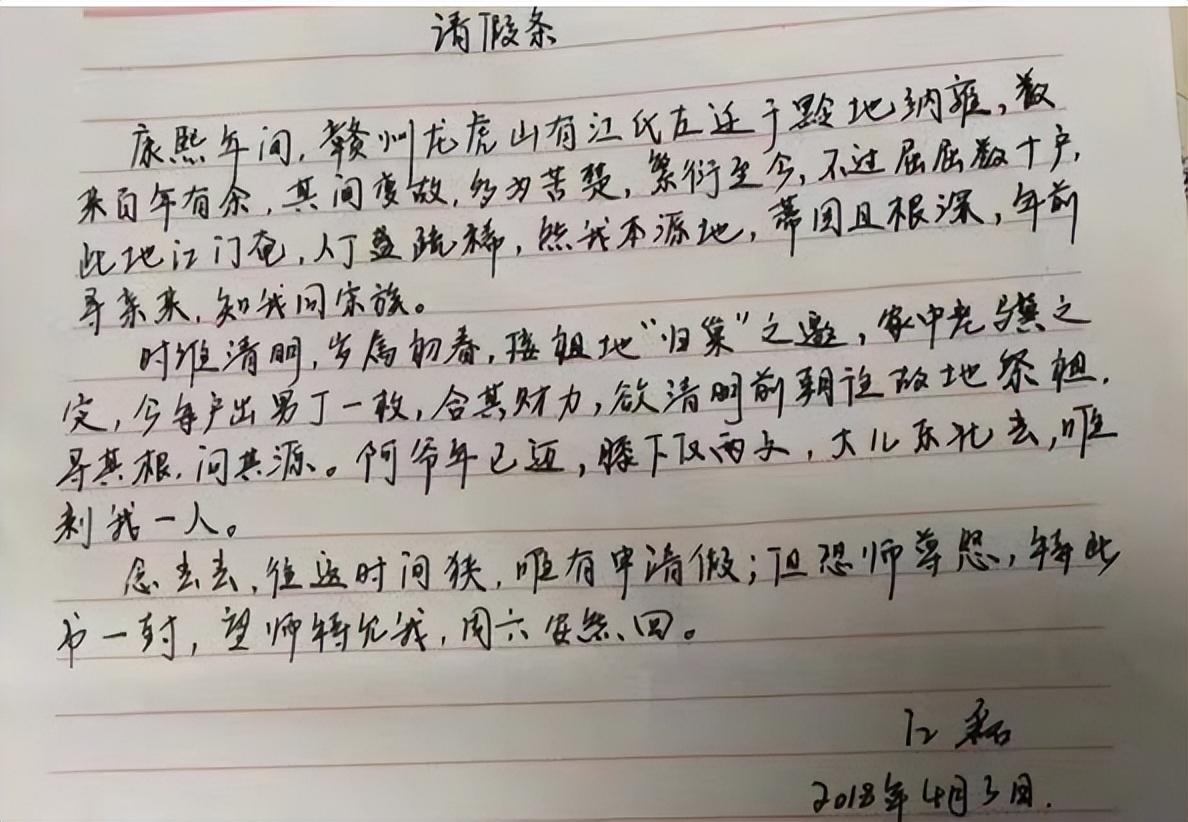 请假条
康熙年间,赣州龙虎山有江氏左迁于黔地纳雍,数
来百年有余,其间变故,多为苦楚,繁衍至今,不过屈屈数十户,
此地江门奄,人丁益疏稀,然我本源地,蒂固且根深,年前
寻亲来,知我同宗族。
时维清明,岁属初春,接祖地“归巢”之邀,家中老与冀之
定,今每户出男丁一枚,合其财力,欲清明前朝往故地祭祖,
寻其根,问其源。阿爷年已迈,膝下仅两丈,大儿东北去,唯
剩我一人。
念去去,往返时间狭,唯有申请假;但恐师尊怒,特此
书一封,望师特允我,周六安然回。
江磊
2018年4月3日.